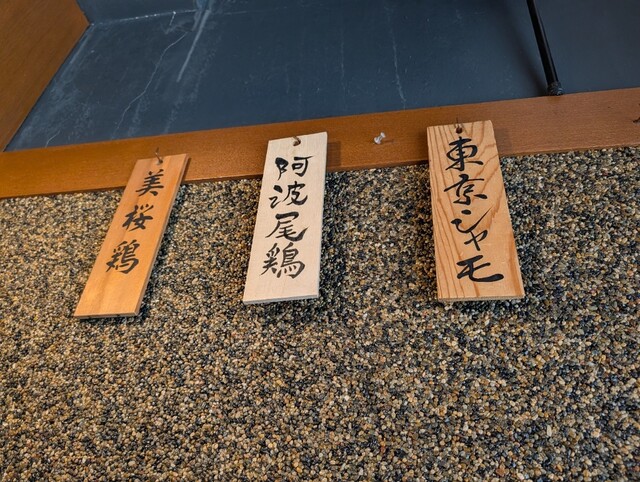 美桜鶏
阿波尾鶏
東京シャモ